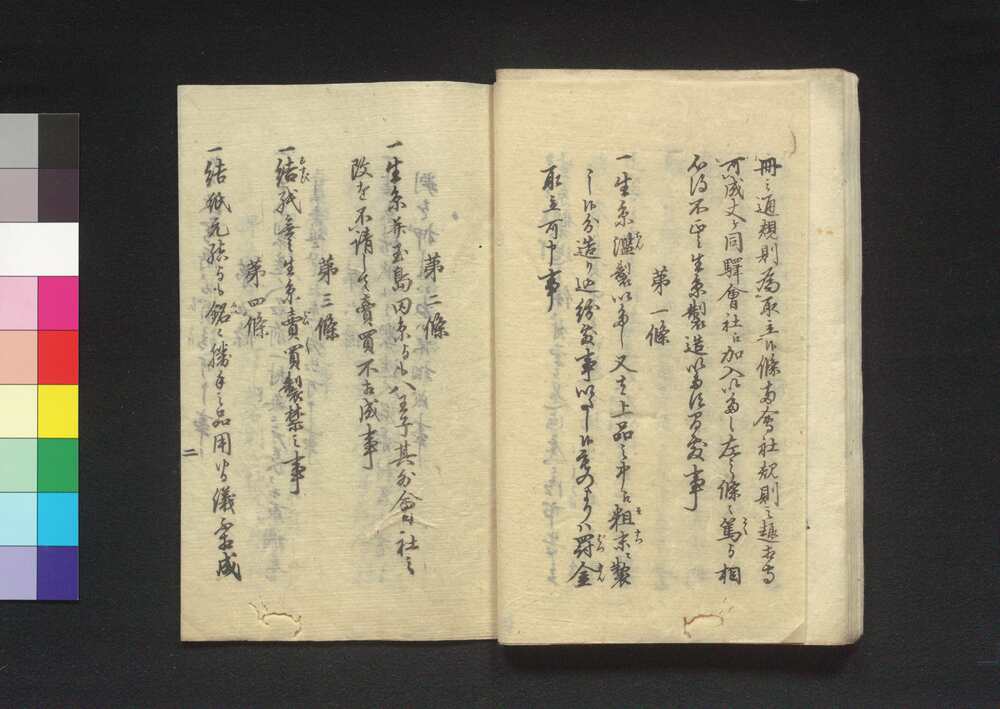 冊之通規則為取立候条當會社規則之趣
可成丈ケ同驛會社江加入いたし左之條々篤与相
心得不正之生糸製造いたす間敷事
第一條
一生糸濫製いたし又者上品之中江粗末之製
之口分造り込紛敷事いたし候ものより八罰金
取立可申事
第二條
一生糸并玉島田糸与も八王子其外會社之
改を不請して賣買不相成事
第三條
一結紙無之生糸賣買製禁之事
第四條
一結紙元結与も銘々勝手之品用ゆる儀不成
二